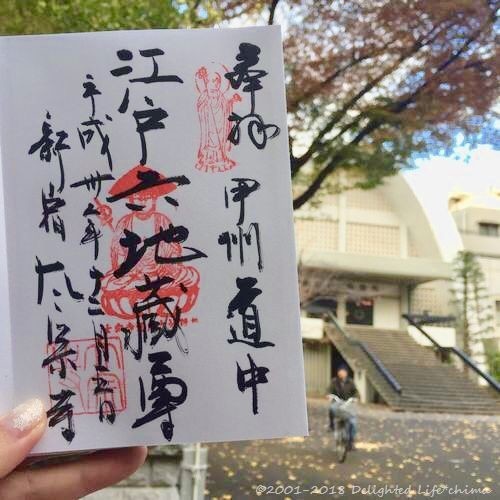 奉拝
甲州道中
江戸六地蔵尊
平成卅年十二月三日
新宿 太宗寺
©2001-2018 Delighted Life*chima